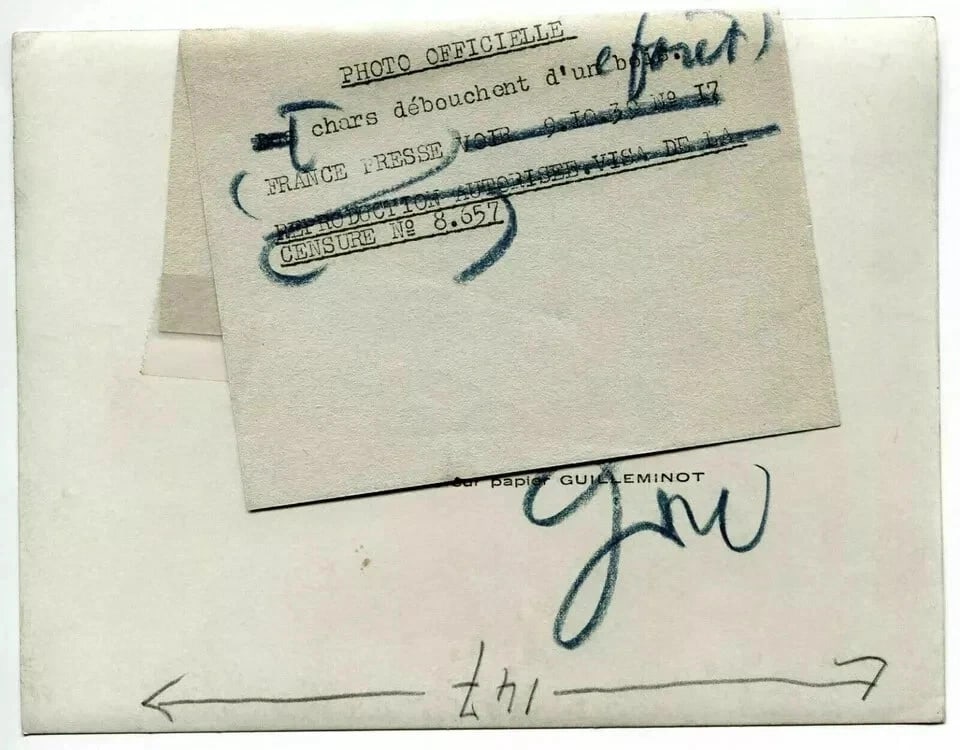 PHOTO OFFICIELLE
chars débouchent d'un bois. forêt)
FRANCE PRESSE VOIR 9.10.39 Nº 17
REPRODUCTION AUTORISEE.VISA DE LA
CENSURE Nº 8.657
Sur papier GUILLEMINOT
147